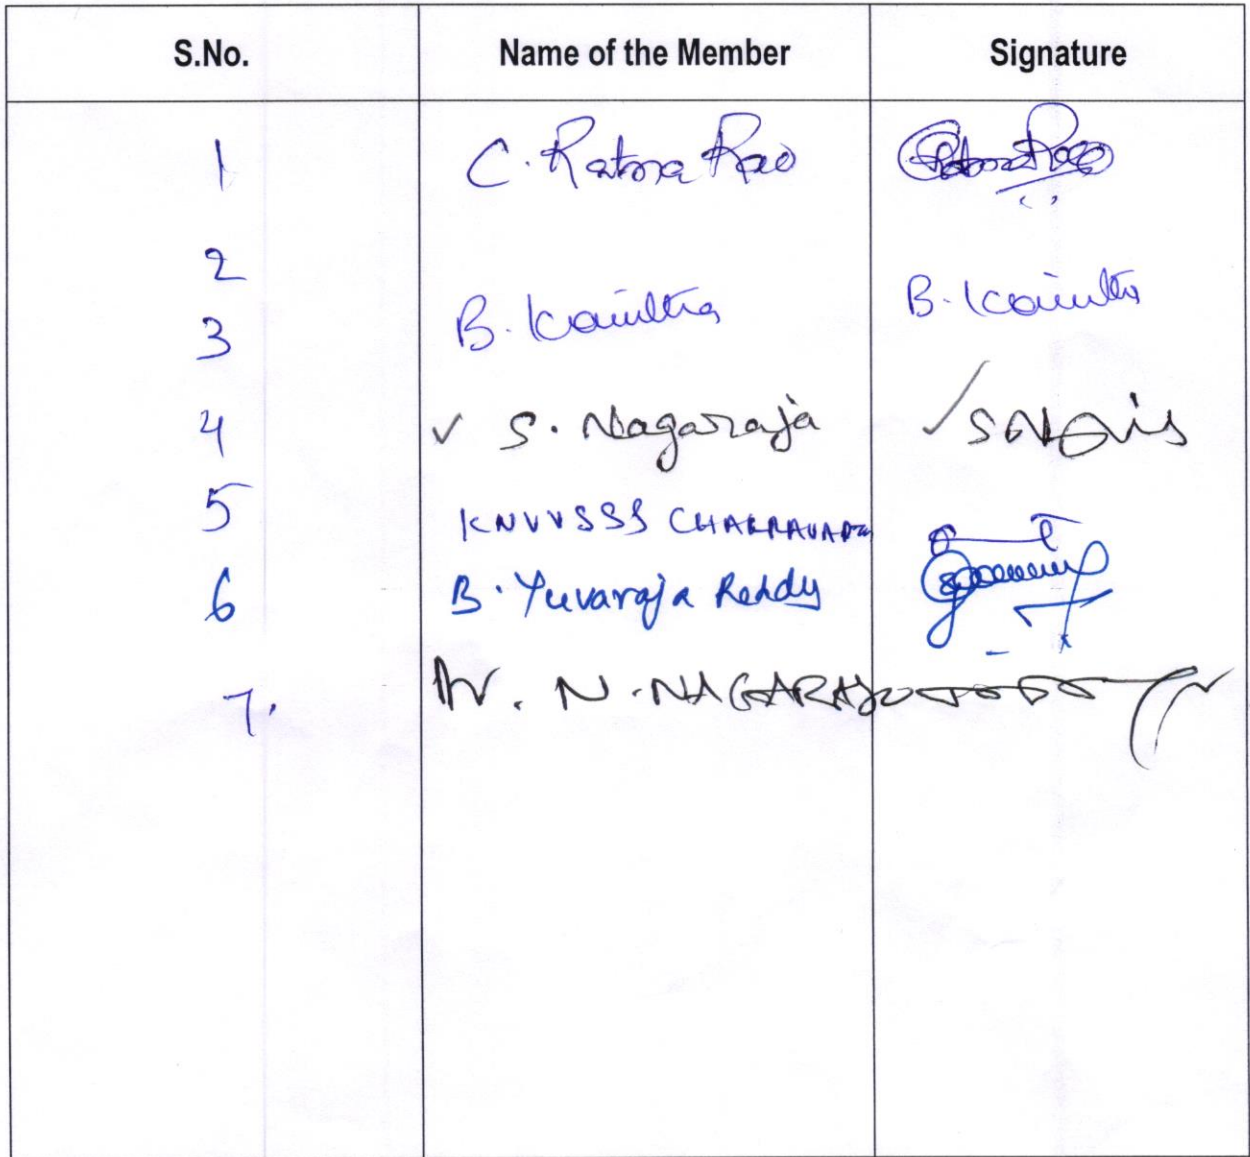 S.No. Name of the Member Signature
1 C. Ratna Rao Ratna Rao
2
3 B. Kavitha B. Kavitha
4 ✓ S. Nagaraja ✓
5 KNVVSSS CHAKRAVARTHY
6 B. Yuvaraja Reddy
7. N. NAGARAJU